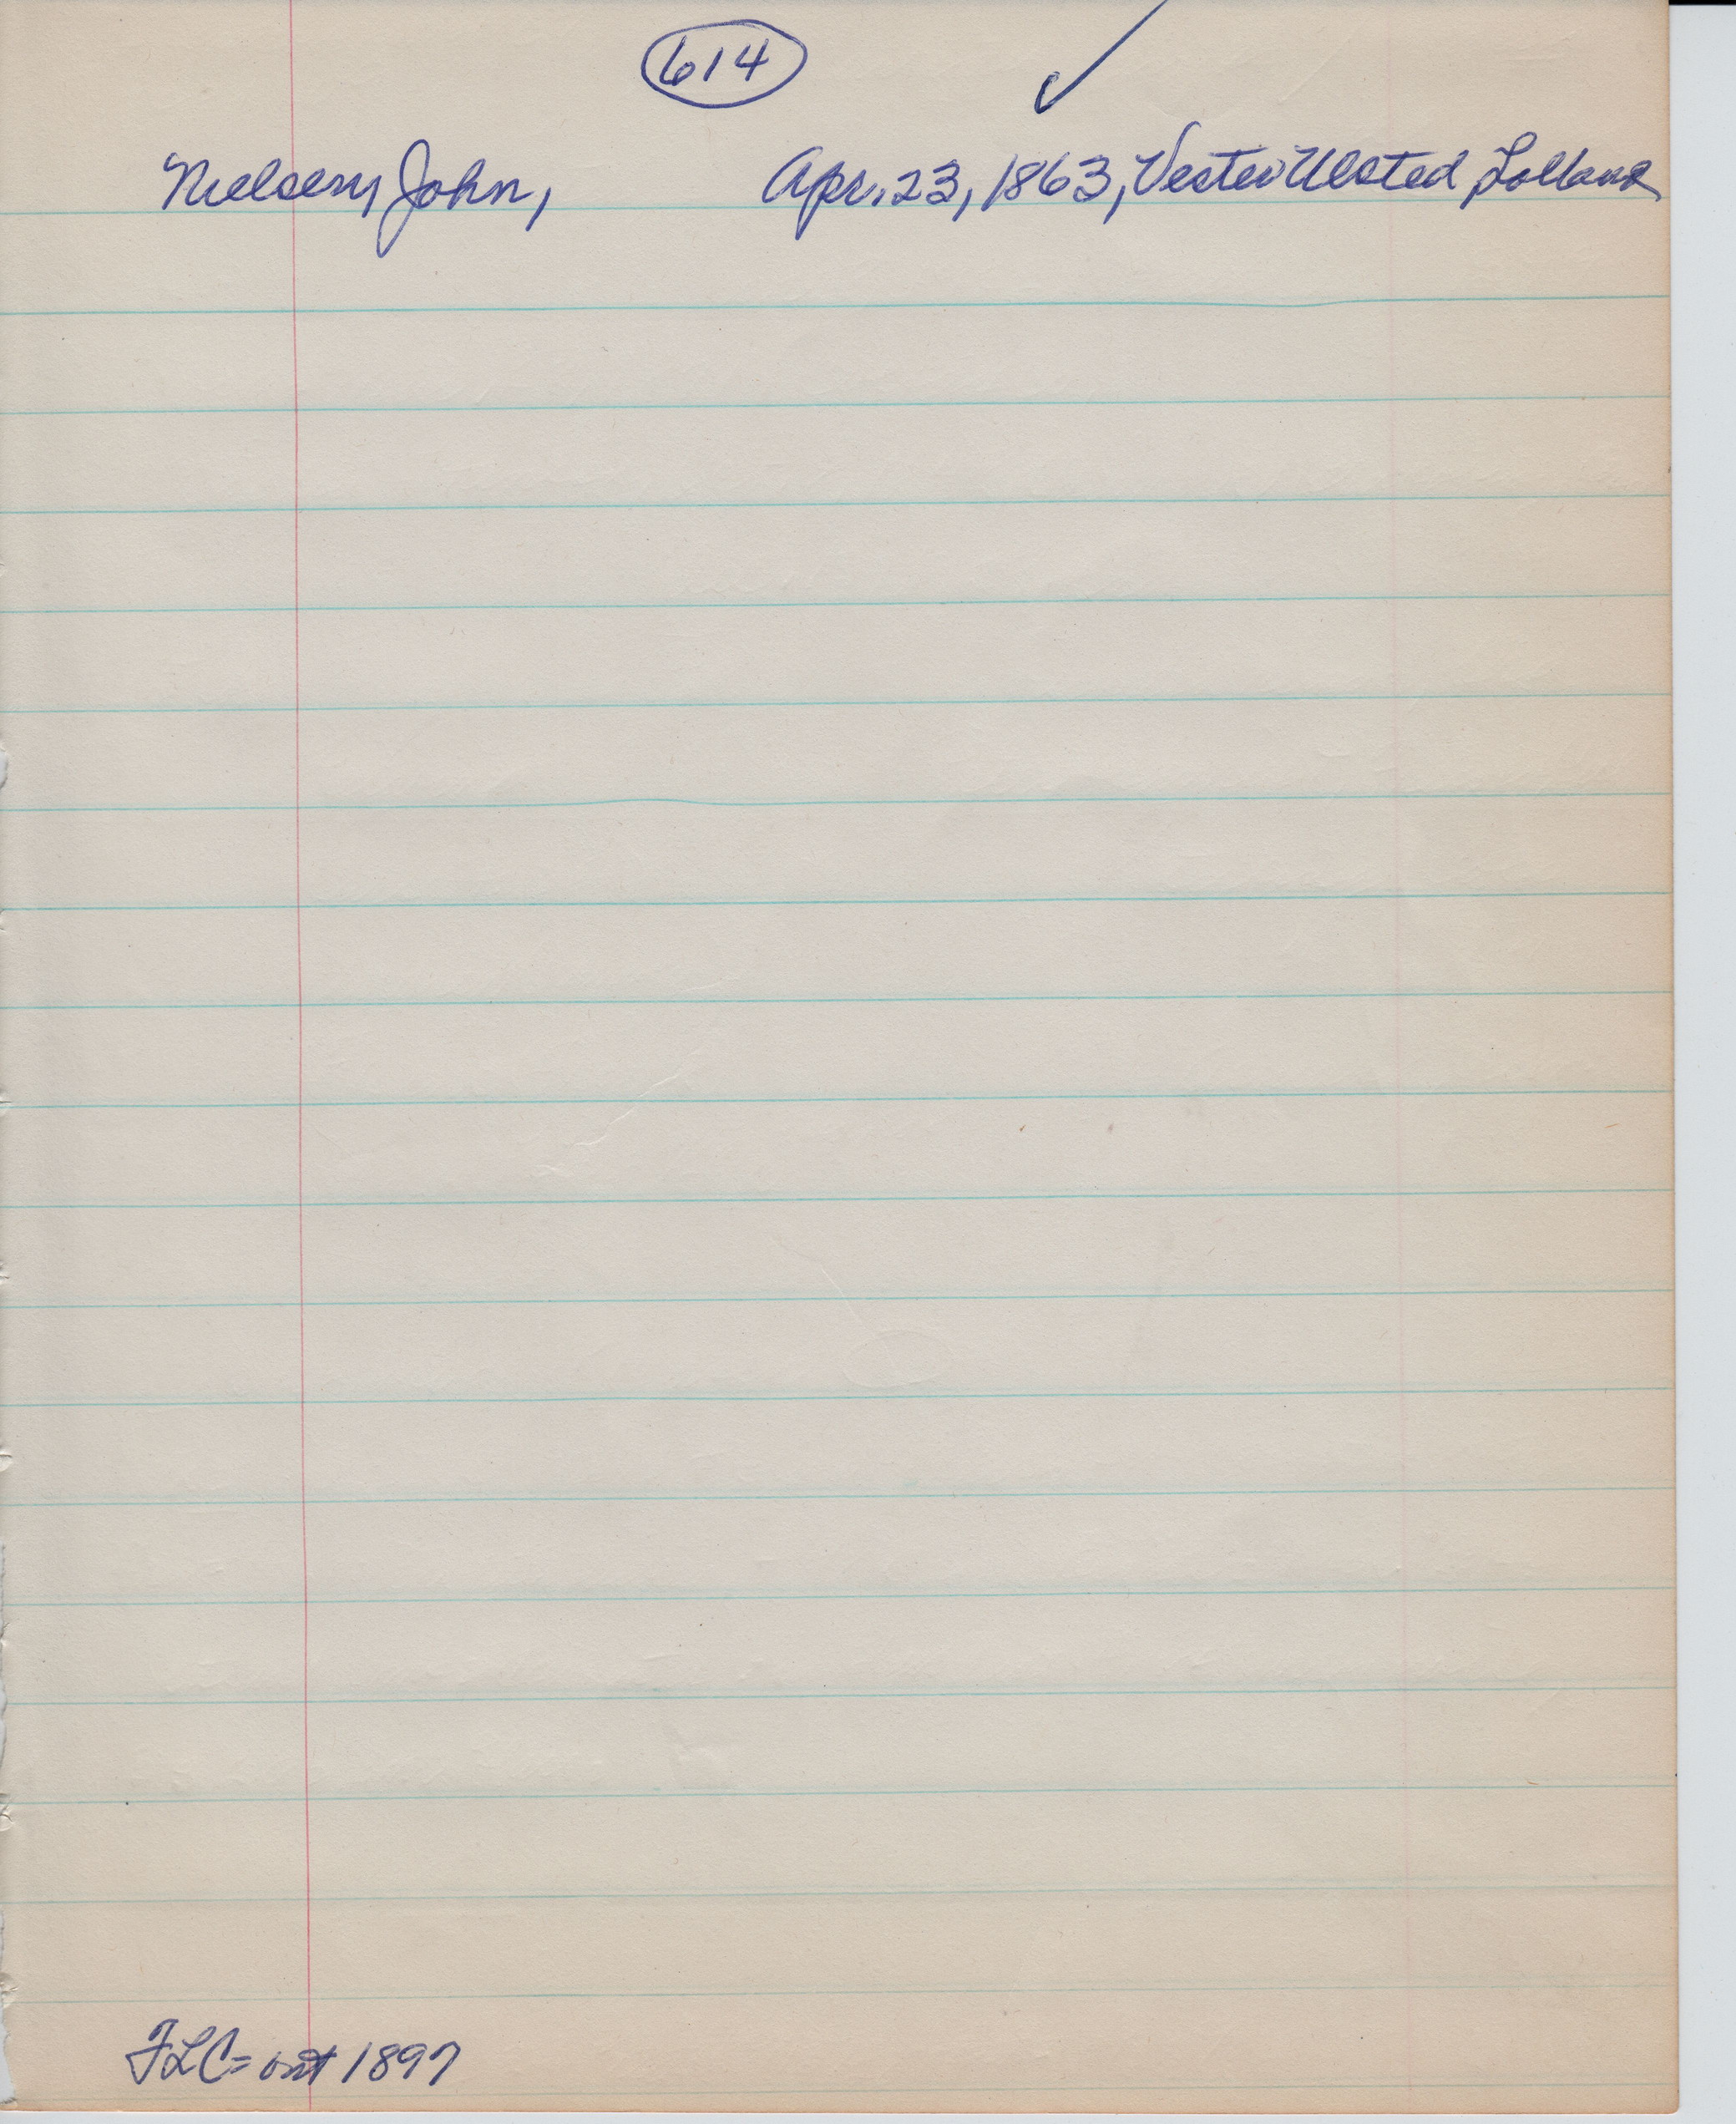 614
Nielsen, John, Apr. 23, 1863, Vester Ulsted, Lolland
FLC= out 1897